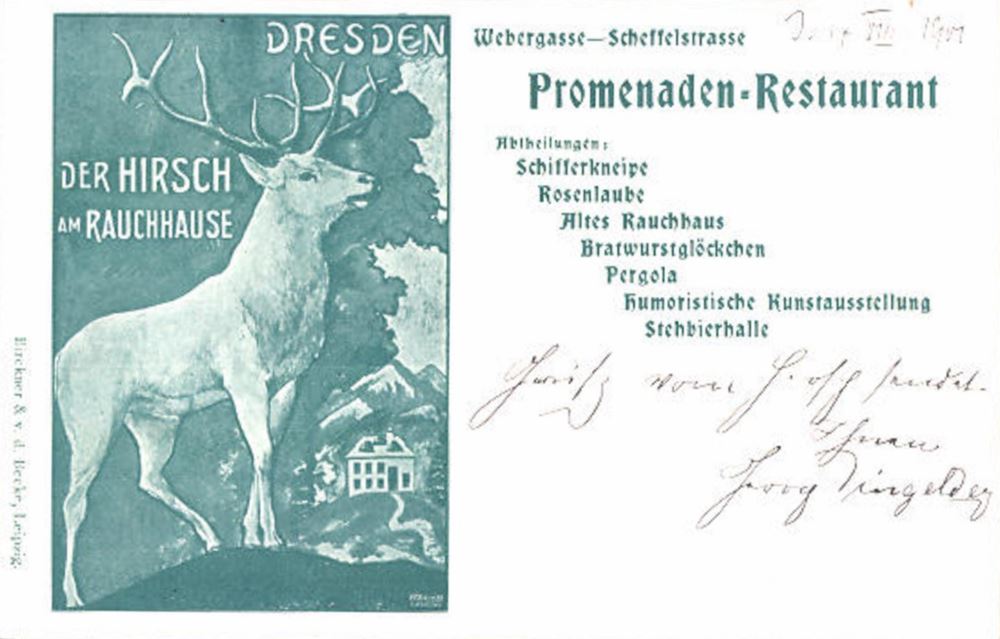 DRESDEN
DER HIRSCH
AM RAUCHHAUSE
Webergasse—Scheffelstrasse
VIII 1901
Promenaden-Restaurant
Abtheilungen:
Schifferkneipe
Rosenlaube
Altes Rauchhaus
Bratwurstglöckchen
Pergola
Humoristische Kunstausstellung
Stehbierhalle
vom sendet
Ihnen
Georg
Birckner & v. d. Becke, Leipzig.